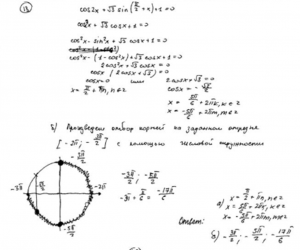 13
cos2x + √3 sin(π/2 + x) + 1 = 0
cos2x + √3 cosx + 1 = 0
cos²x - sin²x + √3 cosx + 1 = 0
cos²x - (1 - cos²x) + √3 cosx + 1 = 0
2cos²x + √3 cosx = 0
cosx (2cosx + √3) = 0
cosx = 0 или 2cosx + √3 = 0
x = π/2 + πn, n∈z cosx = -√3/2
x = 5π/6 + 2πk, k∈z
x = -5π/6 + 2πm, m∈z
б) Произведем отбор корней на заданном отрезке
[-2π; ] с помощью окружности
-3π/2 -2π
-3π
-3π + π/6 = -17π/6
Ответ: а) x = π/2 + πn, n∈z
x = 5π/6 + 2πk, k∈z
x = -5π/6 + 2πm, m∈z
б) -17π/6